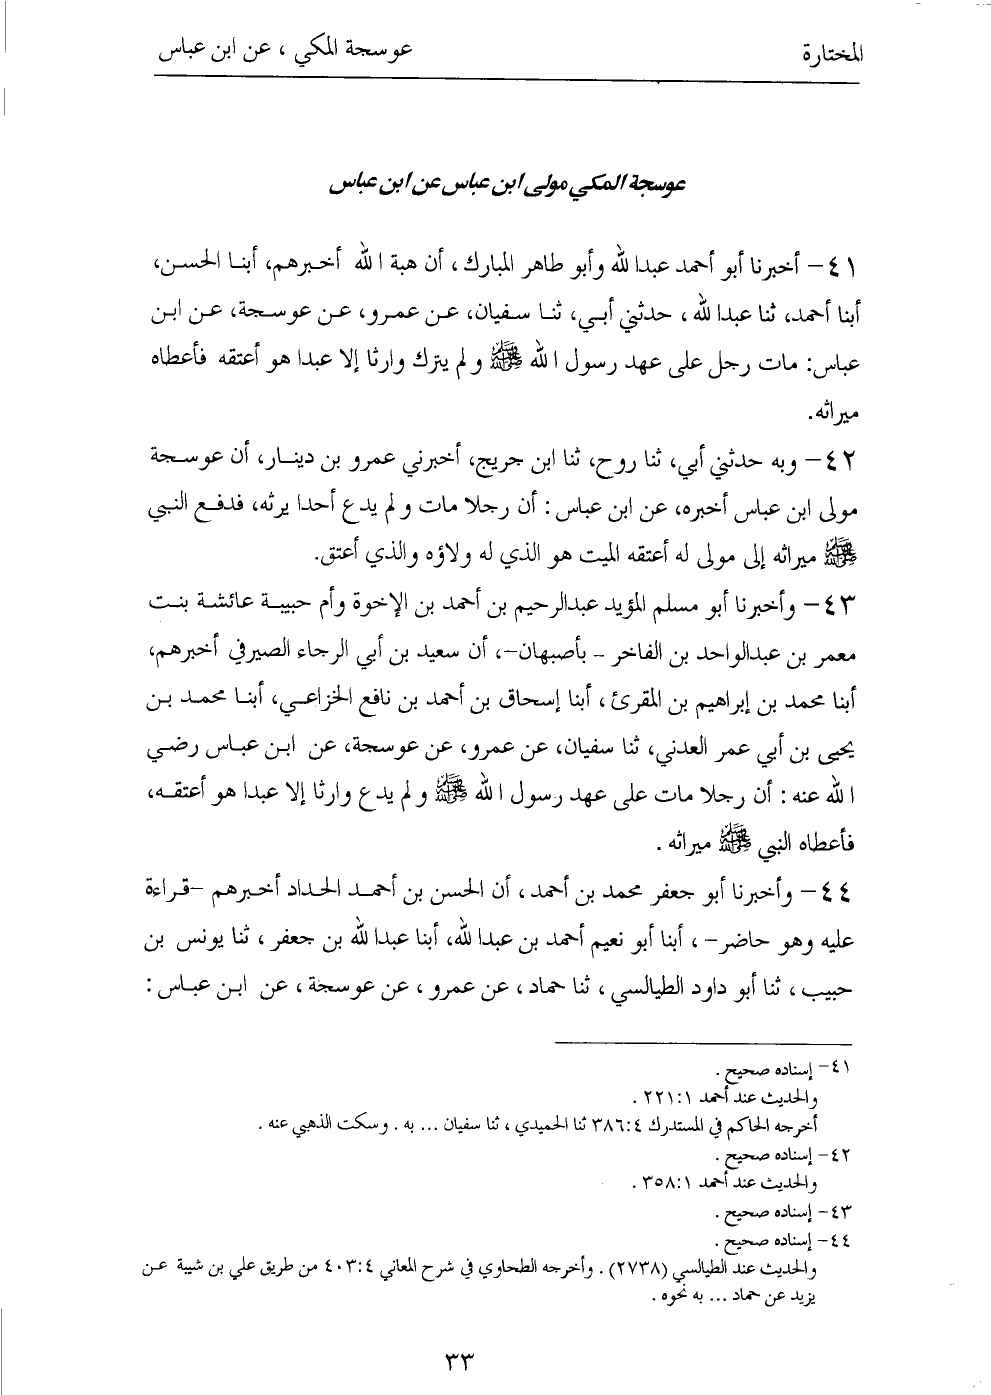 المختارة
عوسجة المكي ، عن ابن عباس
عوسجة المكي مولى ابن عباس عن ابن عباس
٤١- أخبرنا أبو أحمد عبدالله وأبو طاهر المبارك، أن هبة الله أخبرهم، أبنا الحسن،
أبنا أحمد، ثنا عبدالله ، حدثني أبي، ثنا سفيان، عن عمرو، عن عوسجة، عن ابن
عباس: مات رجل على عهد رسول الله ﷺ ولم يترك وارثا إلا عبدا هو أعتقه فأعطاه
ميراثه.
٤٢- وبه حدثني أبي، ثنا روح، ثنا ابن جريج، أخبرني عمرو بن دينار، أن عوسجة
مولى ابن عباس أخبره، عن ابن عباس : أن رجلا مات ولم يدع أحدا يرثه، فدفع النبي
ﷺ ميراثه إلى مولى له أعتقه الميت هو الذي له ولاؤه والذي أعتق.
٤٣- وأخبرنا أبو مسلم المؤيد عبدالرحيم بن أحمد بن الإخوة وأم حبيبة عائشة بنت
معمر بن عبدالواحد بن الفاخر - بأصبهان-، أن سعيد بن أبي الرجاء الصيرفي أخبرهم،
أبنا محمد بن إبراهيم بن المقرئ ، أبنا إسحاق بن أحمد بن نافع الخزاعي، أبنا محمد بن
يحيى بن أبي عمر العدني، ثنا سفيان، عن عمرو، عن عوسجة، عن ابن عباس رضي
الله عنه : أن رجلا مات على عهد رسول الله ﷺ ولم يدع وارثا إلا عبدا هو أعتقه،
فأعطاه النبي ﷺ ميراثه .
٤٤- وأخبرنا أبو جعفر محمد بن أحمد، أن الحسن بن أحمد الحداد أخبرهم -قراءة
عليه وهو حاضر- ، أبنا أبو نعيم أحمد بن عبدالله، أبنا عبدالله بن جعفر ، ثنا يونس بن
حبيب ، ثنا أبو داود الطيالسي ، ثنا حماد ، عن عمرو ، عن عوسجة ، عن ابن عباس :
٤١- إسناده صحيح .
والحديث عند أحمد ٢٢١:١ .
أخرجه الحاكم في المستدرك ٣٨٦:٤ ثنا الحميدي ، ثنا سفيان ... به . وسكت الذهبي عنه .
٤٢- إسناده صحيح .
والحديث عند أحمد ٣٥٨:١ .
٤٣- إسناده صحيح .
٤٤- إسناده صحيح .
والحديث عند الطيالسي (٢٧٣٨) . وأخرجه الطحاوي في شرح المعاني ٤٠٣:٤ من طريق علي بن شيبة عن
يزيد عن حماد ... به نحوه .
٣٣